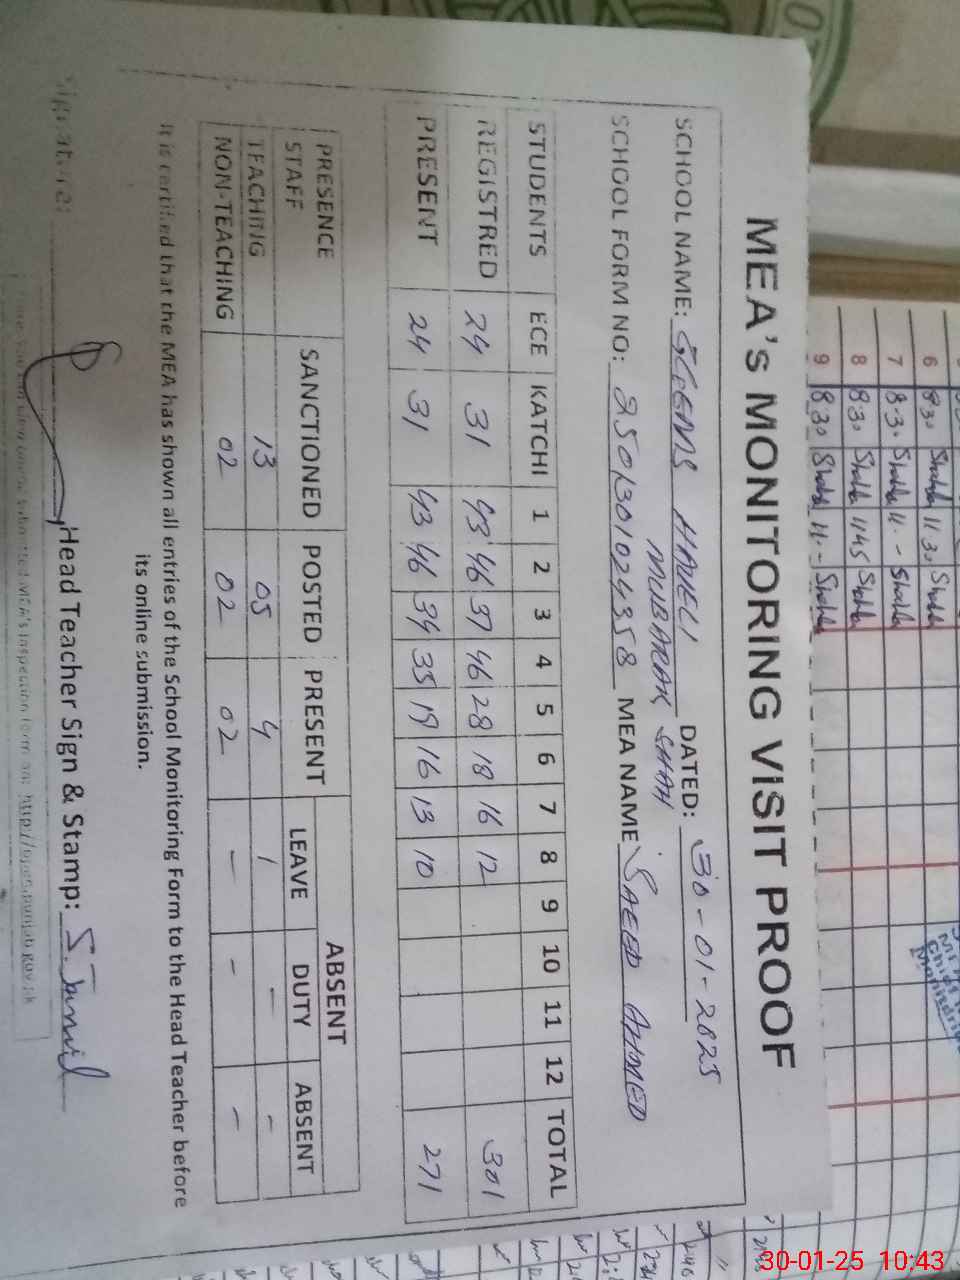 MEA's MONITORING VISIT PROOF
SCHOOL NAME: HAVELI MUBARAK SHAH DATED: 30-01-2025
SCHOOL FORM NO: MEA NAME SAEED AHMED
STUDENTS ECE KATCHI 1 2 3 4 5 6 7 8 9 10 11 12 TOTAL
REGISTRED 24 31 43 46 37 46 28 18 16 12 301
PRESENT 24 31 43 46 34 35 19 16 13 10 271
PRESENCE STAFF SANCTIONED POSTED PRESENT ABSENT
LEAVE DUTY ABSENT
TEACHING 13 05 4 1 - -
NON-TEACHING 02 02 02 - - -
It is certified that the MEA has shown all entries of the School Monitoring Form to the Head Teacher before
its online submission.
Signature: Head Teacher Sign & Stamp: S. Jamil
6 8.30 11.30
7 8.30 11.-
8 8.30 11.45
9 8.30 11.-
30-01-25 10:43